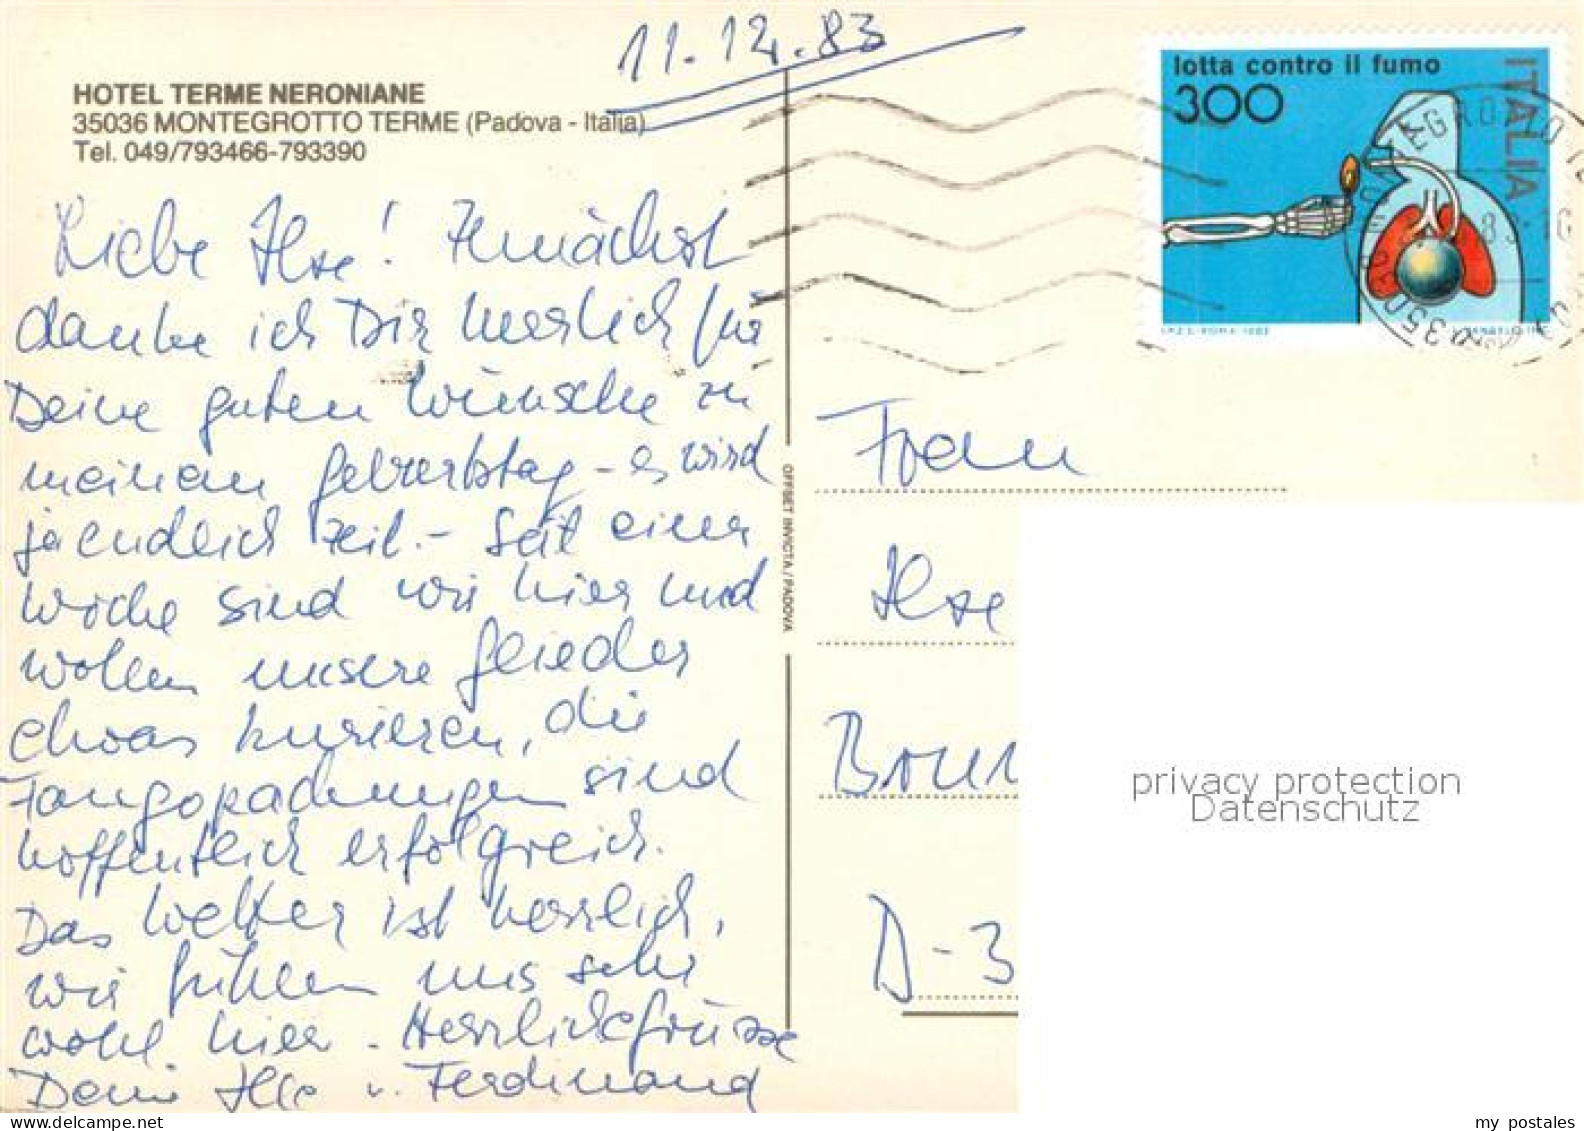 11.12.83
HOTEL TERME NERONIANE
35036 MONTEGROTTO TERME (Padova - Italia)
Tel. 049/793466-793390
lotta contro il fumo
300
ITALIA
I.P.Z.S.-ROMA-1983
Liebe Ilse! Zunächst
danke ich Dir herzlich für
Deine guten Wünsche zu
meinem Geburtstag - es wird
ja endlich Zeit. - Seit einer
Woche sind wir hier und
wollen unsere Glieder
etwas kurieren, die
Fangopackungen sind
hoffentlich erfolgreich.
Das Wetter ist herrlich,
wir fühlen uns sehr
wohl hier. Herzliche Grüsse
Deine Ilse u. Ferdinand
OFFSET INVICTA/PADOVA
Frau
Ilse
D-3
privacy protection
Datenschutz
my postales